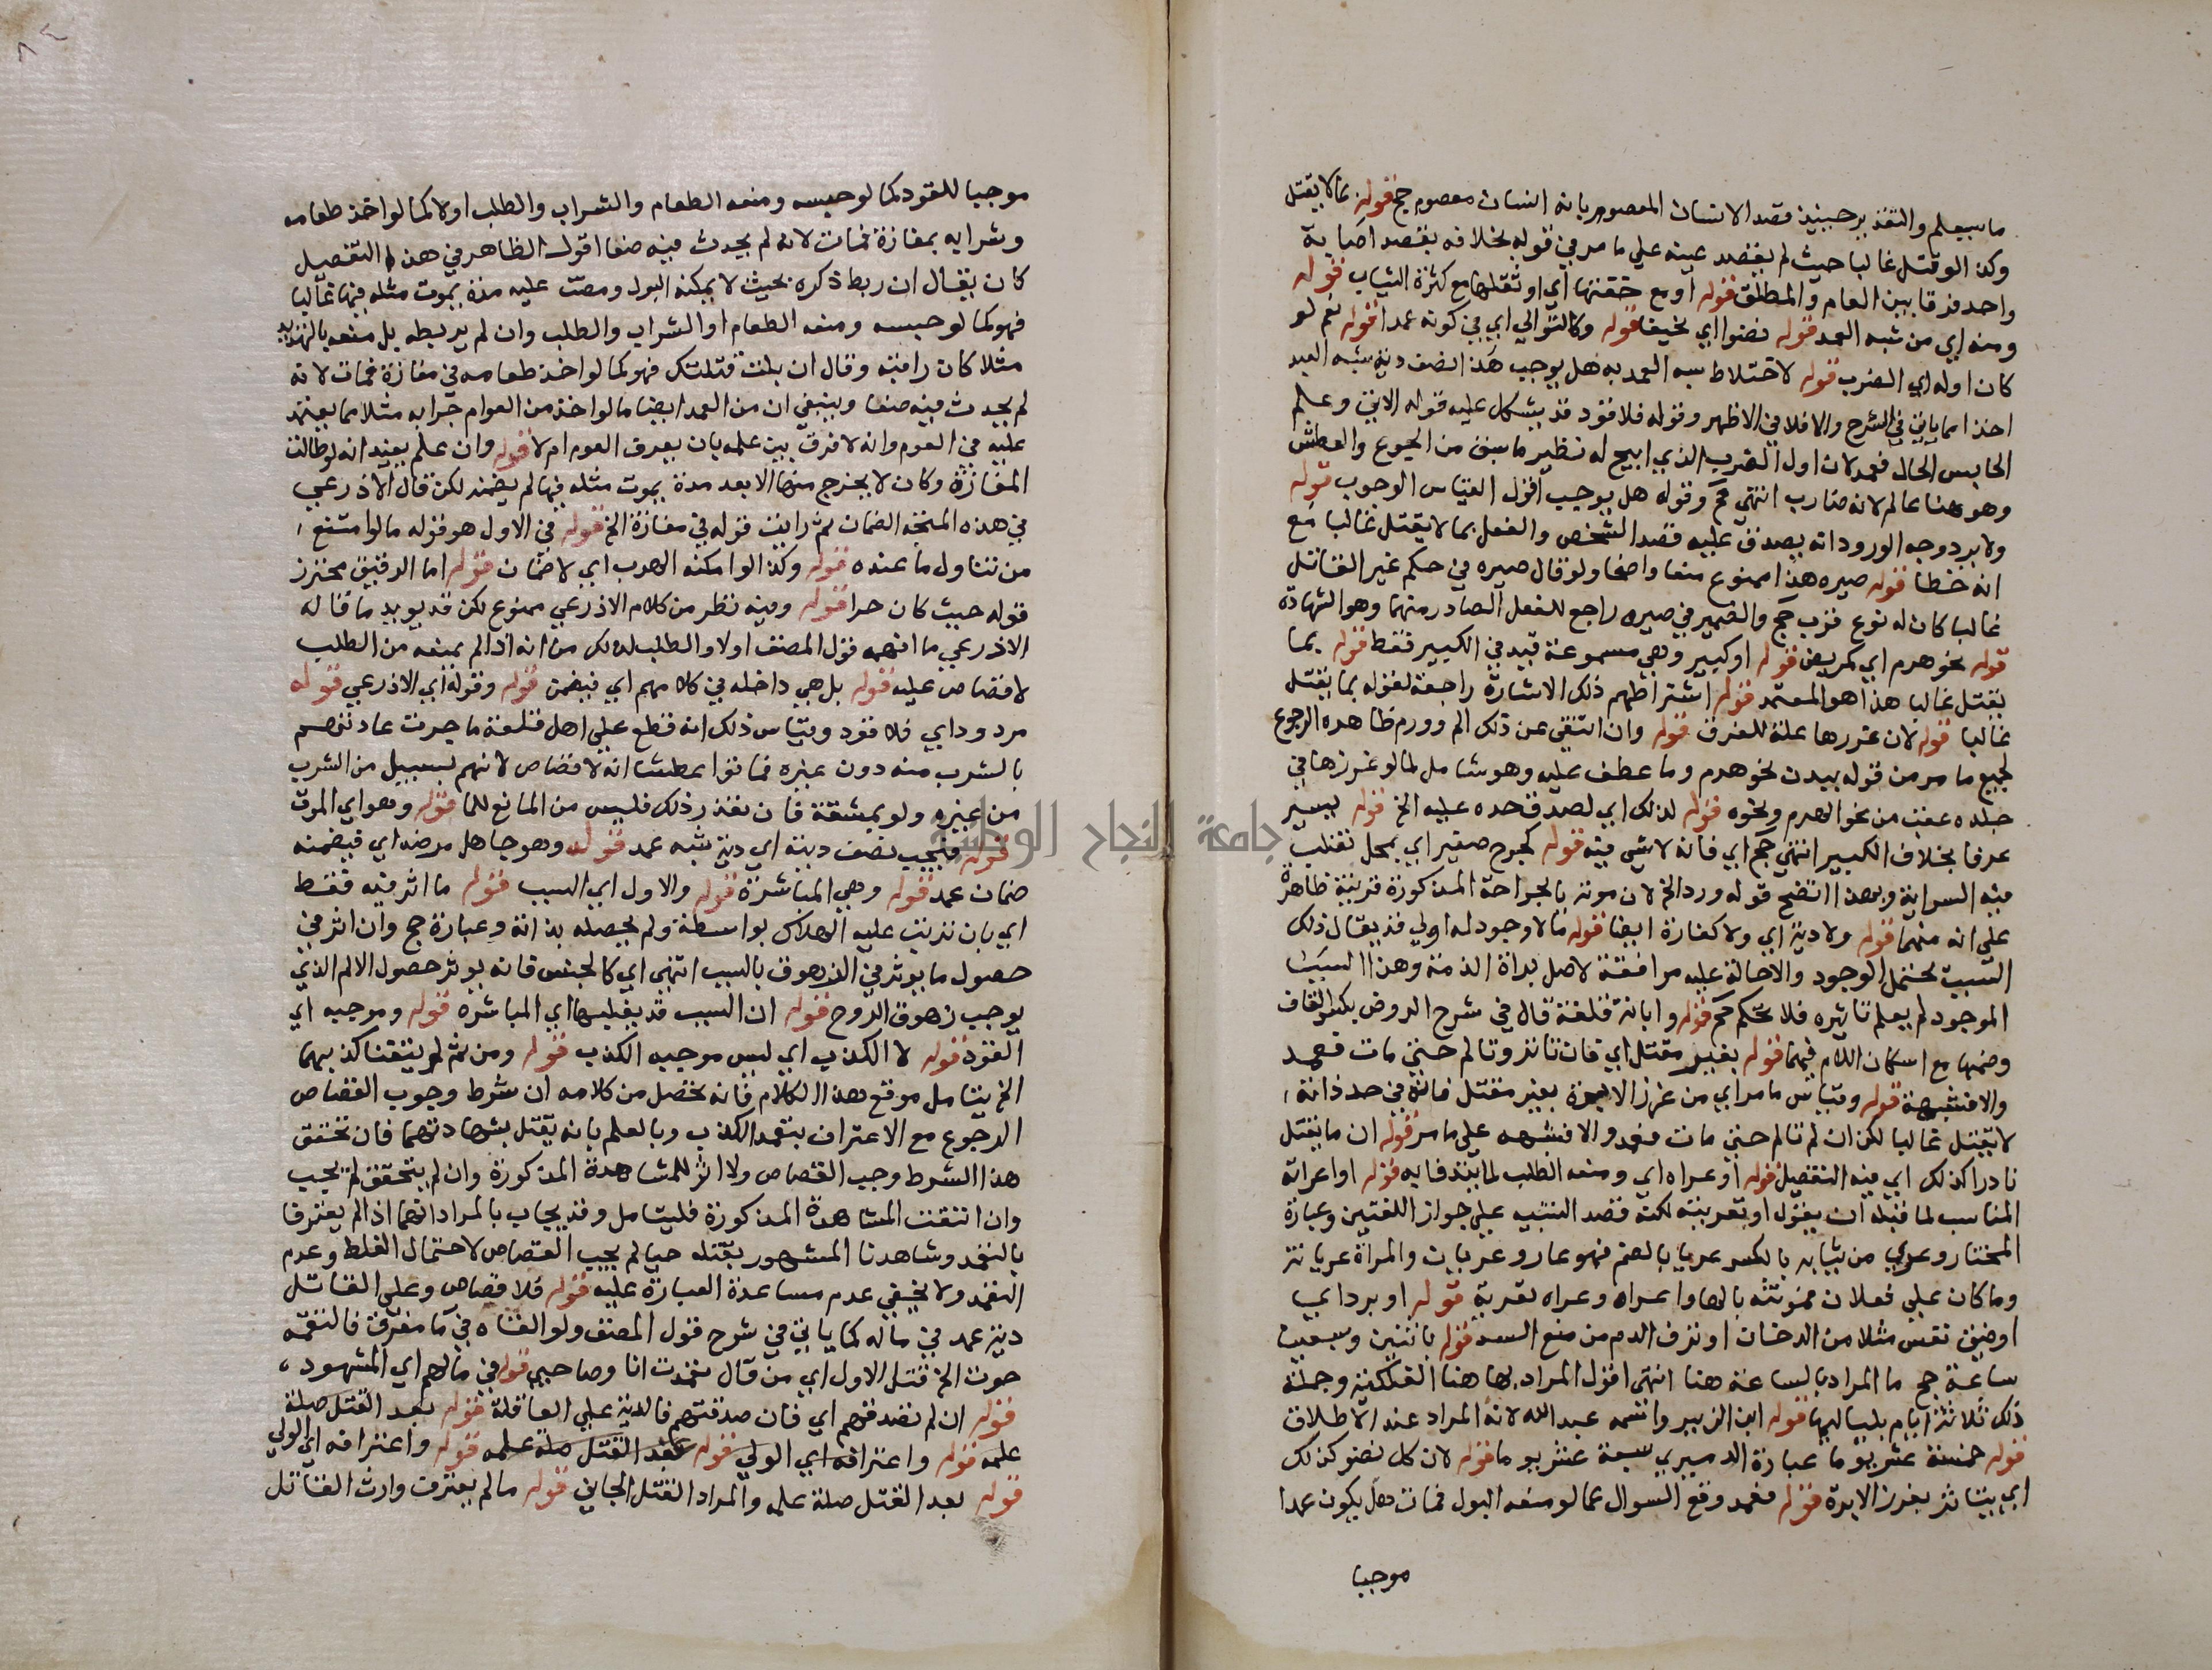 ما سيعلم والتقدير حينيذ قصد الانسان المعصوم بانه انسان معصوم حج قوله بما لا يقتل
وكذا لو قتل غالبا حيث لم يقصد عينه علي ما مر في قوله بخلافه بقصد اصابة
واحد فرقا بين العام والمطلق قوله او مع خفتها اي او ثقلها مع كثرة الثياب قوله
ومنه اي من شبه العمد قوله نضوا اي نحيفا قوله وكالتوالي اي في كونه عمدا قوله نعم لو
كان اوله اي الضرب قوله لاختلاط شبه العمد به هل يوجب هذا نصف دية شبه العمد
اخذا مما ياتي في الشرح والا فلا في الاظهر وقوله فلا قود قد يشكل عليه قوله الاتي وعلم
الحابس الحال فعمد لان اول الضرب الذي ابيح له نظير ما سبق من الجوع والعطش
وهو هنا عالم لانه ضارب انتهي حج وقوله هل يوجب اقول القياس الوجوب قوله
ولا يرد وجه الورود انه يصدق عليه قصد الشخص والفعل بما لا يقتل غالبا مع
انه خطا قوله صيره هذا ممنوع منعا واضحا ولو قال صيره في حكم غير القاتل
غالبا كان له نوع قرب حج والضمير في صيره راجع للفعل الصادر منهما وهو الشهادة
قوله نحو هرم اي كمريض قوله او كبير وهي مسموعة قيد في الكبير فقط قوله بما
يقتل غالبا هذا هو المعتمد قوله اشتراطهم ذلك الاشارة راجعة لقوله بما يقتل
غالبا قوله لان غررها علة للغرق قوله وان انتفي عن ذلك الم وورم ظاهره الرجوع
لجميع ما مر من قوله ببدن نحو هرم وما عطف عليه وهو شامل لما لو غرزها في
جلده عقب من نحو الهرم ونحوه قوله لذلك اي لصدق حده عليه الخ قوله يسير
عرفا بخلاف الكبير انتهي حج اي فانه لا شي فيه قوله كجرح صغير اي بمحل تغلب
فيه السراية وبهذا اتضح قوله ورد الخ لان موته بالجراحة المذكورة قرينة ظاهرة
علي انه منهما قوله ولا دية اي ولا كفارة ايضا قوله فالاوجود له اولي قد يقال ذلك
السبب محتمل الوجود والاحالة عليه موافقة لاصل براة الذمة وهذا السبب
الموجود لم يعلم تاثيره فلا تحكم حج قوله وابانة فلقة قال في شرح الروض بكسر القاف
وضمها مع اسكان اللام فيهما قوله بغير مقتل اي فان تاثر وتالم حتي مات فعمد
والا فشبهه قوله وقياس ما مر اي من غرز الابرة بغير مقتل فانه في حد ذاته
لا يقتل غالبا لكن ان لم تالم حتي مات فعمد والا فشبهه علي ما مر قوله ان ما يقتل
نادرا كذلك اي فيه التفصيل قوله او عراه اي ومنعه الطلب لما يتدفا به قوله او اعراه
المناسب لما قبله ان يقول او تعريته لكنه قصد التنبيه علي جواز اللغتين وعبارة
المختار وعري من ثيابه بالكسر عريا بالضم فهو عار وعريان والمراة عريانة
وما كان علي فعلان فمونثه بالها واعراه وعراه تعرية قوله او برد اي
او ضيق نفس مثلا من الدخان او نزف الدم من منع السد قوله باثنين وسبعين
ساعة حج ما المراد بالساعة هنا انتهي اقول المراد بها هنا الفلكية وجملة
ذلك ثلاثة ايام بلياليها قوله ابن الزبير واسمه عبد الله لانه المراد عند الاطلاق
قوله خمسة عشر يوما عبارة الدميري سبعة عشر يوما قوله لان كل نضو كذلك
اي يتاثر بغرز الابرة قوله فعمد وقع السوال عما لو منعه البول فمات هل يكون عمدا
موجبا
موجبا للقود كما لو حبسه ومنعه الطعام والشراب والطلب اولا كما لو اخذ طعامه
وشرابه بمفازة فمات لانه لم يحدث فيه صنعا اقول الظاهر في هذا التفصيل
كان يقال ان ربط ذكره بحيث لا يمكنه البول ومضت عليه مدة يموت مثله فيها غالبا
فهو كما لو حبسه ومنعه الطعام او الشراب والطلب وان لم يربطه بل منعه بالتهديد
مثلا كان راقبه وقال ان بلت قتلتك فهو كما لو اخذ طعامه في مفازة فمات لانه
لم يحدث فيه صنعا وينبغي ان من العمد ايضا ما لو اخذ من العوام جرابه مثلا مما يعتمد
عليه في العوم وانه لا فرق بين علمه بان يعرف العوم ام لا قوله وان علم يفيد انه لو طالت
المفازة وكان لا يخرج منها الا بعد مدة يموت مثله فيها لم يضمن لكن قال الاذرعي
في هذه المتجه الضمان ثم رايت قوله في مفازة الخ قوله في الاول هو قوله ما لو امتنع
من تناول ما عنده قوله وكذا لو امكنه الهرب اي لا ضمان قوله اما الرقيق محترز
قوله حيث كان حرا قوله وفيه نظر من كلام الاذرعي ممنوع لكن قد يويد ما قاله
الاذرعي ما افهمه قول المصنف اولا والطلب لذلك من انه اذا لم يمنعه من الطلب
لا قصاص عليه قوله بل هي داخله في كلامهم اي فيضمن قوله وقوله اي الاذرعي قوله
مردود اي فلا قود وقياس ذلك انه لو قطع علي اهل قلعة ما جرت عادتهم
بالشرب منه دون غيره فماتوا عطشا انه لا قصاص لانهم بسبيل من الشرب
من غيره ولو بمشقة فان تعذر ذلك فليس من المانع للما قوله وهو اي الموت
قوله فيجب نصف ديته اي دية شبه عمد قوله وهو جاهل مرضه اي فيضمنه
ضمان عمد قوله وهي المباشرة قوله والاول اي السبب قوله ما اثر فيه فقط
اي بان ترتب عليه الهلاك بواسطة ولم يحصله بذاته وعبارة حج وان اثر في
حصول ما يوثر في الزهوق بالسبب انتهي اي كالحبس فانه يوثر حصول الالم الذي
يوجب زهوق الروح قوله ان السبب قد يغلبها اي المباشرة قوله وموجبه اي
القود قوله لا الكذب اي ليس موجبه الكذب قوله ومن ثم لو تيقنا كذبهما
الخ يتامل موقع هذا الكلام فانه تحصل من كلامه ان شرط وجوب القصاص
الرجوع مع الاعتراف بتعمد الكذب وبالعلم بانه يقتل بشهادتهما فان تحقق
هذا الشرط وجب القصاص ولا اثر للمشاهدة المذكورة وان لم يتحقق لم يجب
وان انتفت المشاهدة المذكورة فليتامل وقد يجاب بالمراد انهما اذا لم يعترفا
بالتعمد وشاهدنا المشهور بقتله حيا لم يجب القصاص لاحتمال الغلط وعدم
التعمد ولا يخفي عدم مساعدة العبارة عليه قوله فلا قصاص وعلي القاتل
دية عمد في ماله كما ياتي في شرح قول المصنف ولو القاه في ما مغرق فالتقمه
حوت الخ قتل الاول اي من قال تعمدت انا وصاحبي قوله في مالهم اي المشهود
قوله ان لم تصدقهم اي فان صدقتهم فالدية علي العاقلة قوله بعد القتل صلة
علمه قوله واعترافه اي الولي قوله بعد القتل صلة علمه قوله واعترافه اي الولي
قوله بعد القتل صلة علم والمراد القتل الجاني قوله ما لم يعترف وارث القاتل
جامعة النجاح الوطنية